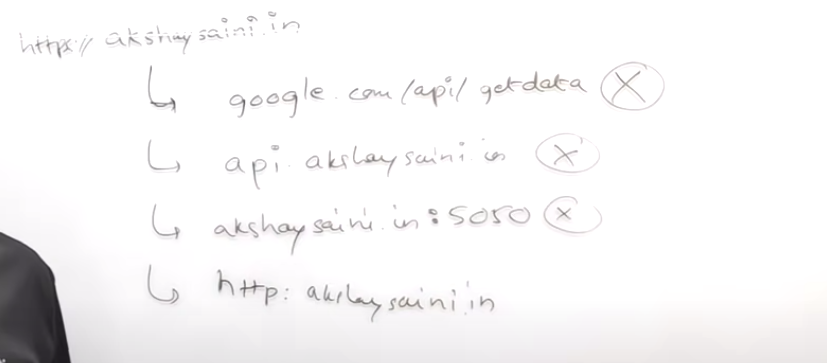 https:// akshaysaini.in
↳ google.com/api/getdata X
↳ api.akshaysaini.in X
↳ akshaysaini.in:5050 X
↳ http: akshaysaini.in